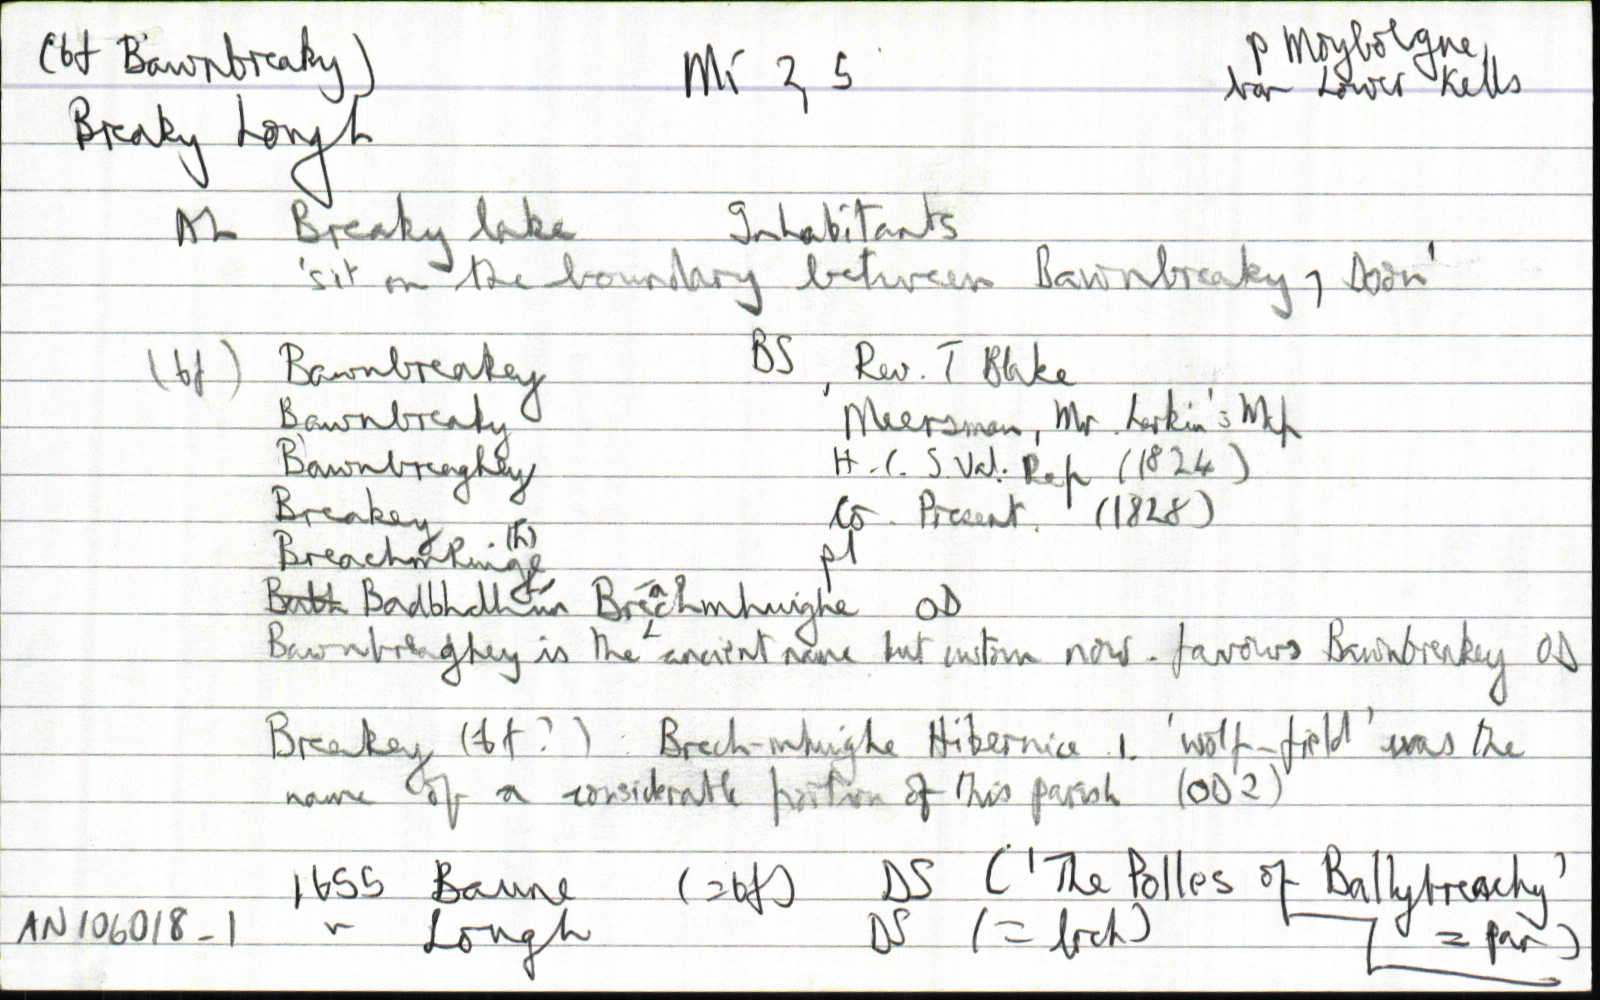 (bf Bawnbreaky) Mí 2, 5 p Moybolgne
Breaky Lough bar Lower Kells
AL Breaky lake Inhabitants
'sit on the boundary between Bawnbreaky, Doon'
(bf) Bawnbreakey BS, Rev. T Blake
Bawnbreaky Meersman, Mr. Larkin's Map
Bawnbreaghey H.C.S. Val. Rep (1824)
Breakey Co. Present. (1828)
Breachmhuighe pl
Badbhdhún Breachmhuighe OD
Bawnbreaghey is the ancient name but custom now favours Bawnbreakey OD
Breakey (bf?) Brech-mhuighe Hibernice .i. 'wolf-field' was the
name of a considerable portion of this parish (OD2)
1655 Baune (=bf) DS ('The Polles of Ballybreachy'
" Lough DS (= loch) = par)
AN106018_1